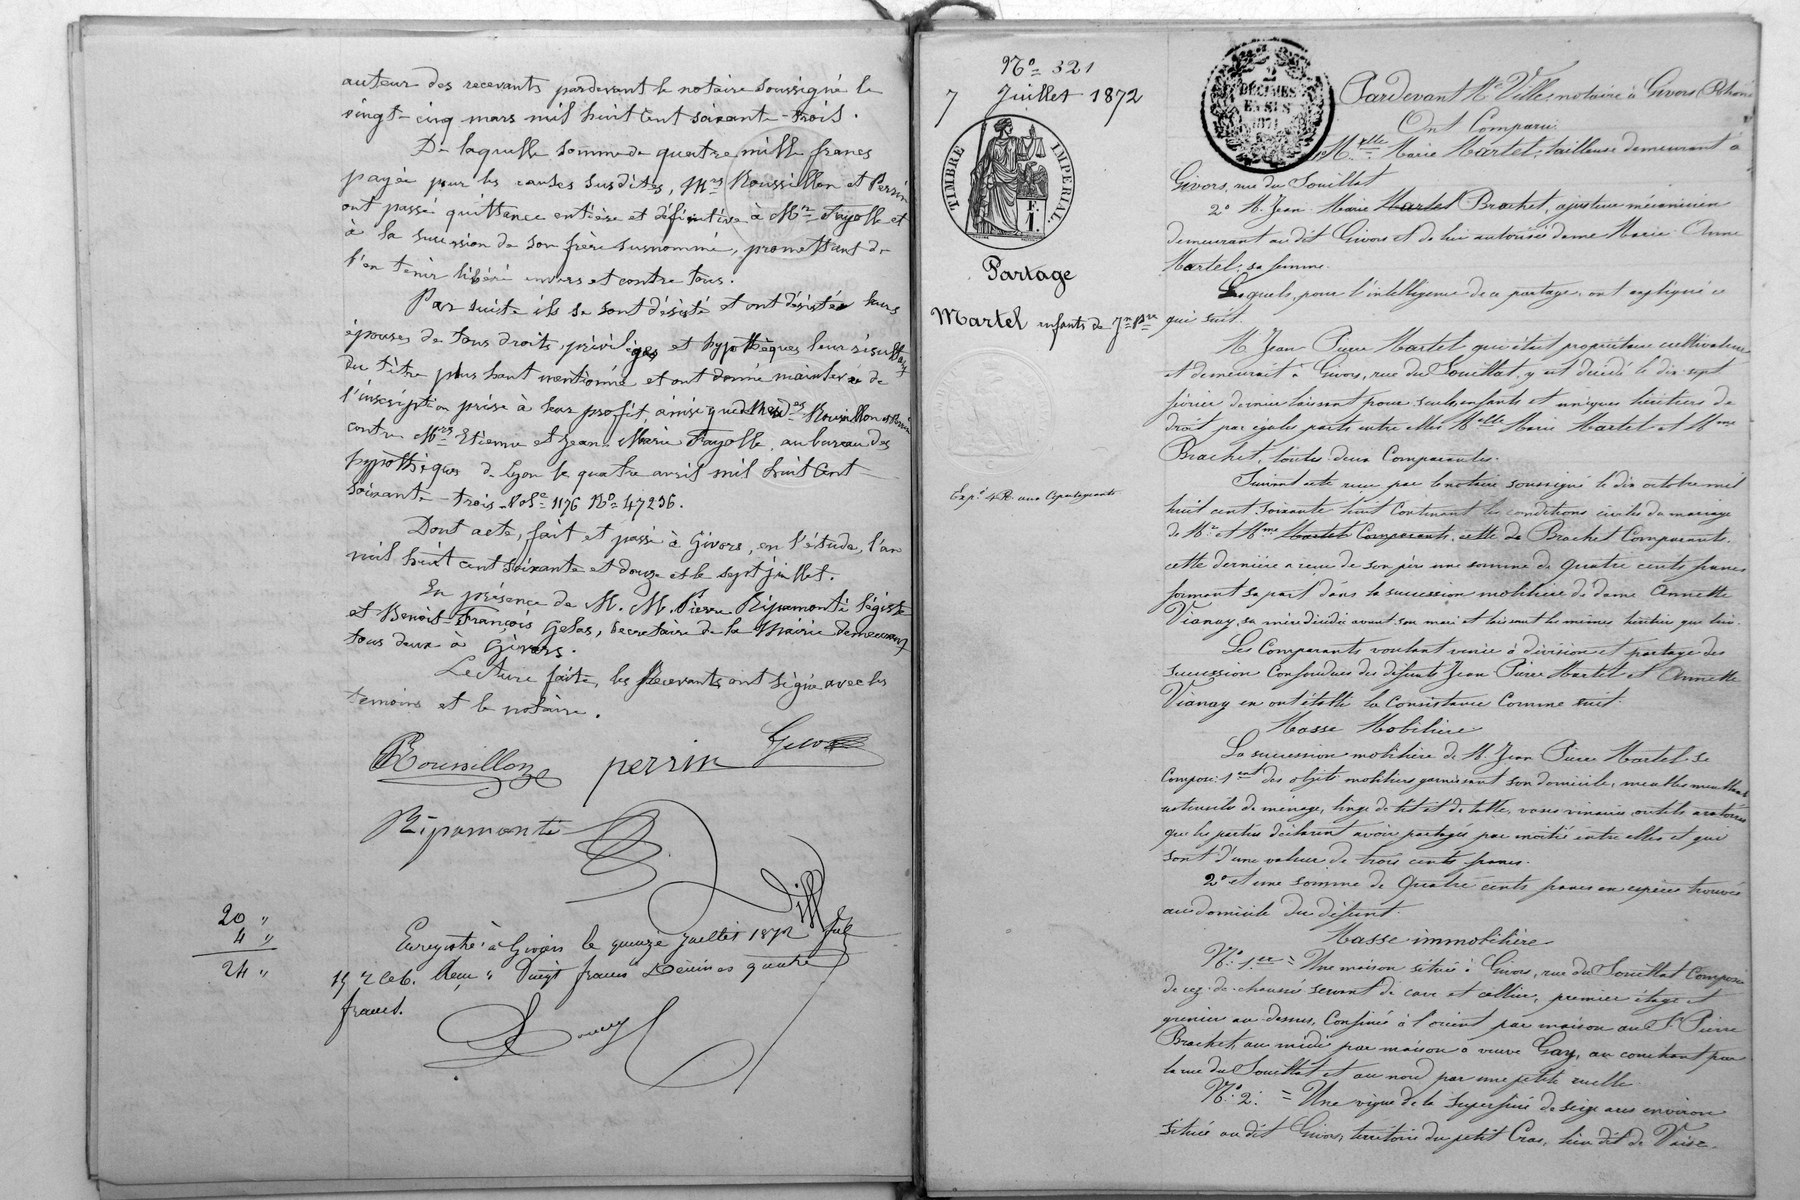 auteur des recevants pardevant le notaire soussigné le
vingt-cinq mars mil huit cent soixante-trois.
De laquelle somme de quatre mille francs
payée pour les causes susdites, Mrs Roussillon et Perrin
ont passé quittance entière et définitive à Mr Fayolle et
à la succession de son frère susnommé, promettant de
l'en tenir libéré envers et contre tous.
Par suite ils se sont désisté et ont désisté leurs
épouses de tous droits, privilèges et hypothèques leur résultant
du titre plus haut mentionné et ont donné mainlevée de
l'inscription prise à leur profit ainsi que Mesdes Roussillon et Perrin
contre Mrs Etienne et Jean-Marie Fayolle au bureau des
hypothèques de Lyon le quatre avril mil huit cent
soixante-trois vole 1176 No 47236.
Dont acte, fait et passé à Givors, en l'étude, l'an
mil huit cent soixante et douze et le sept juillet.
En présence de M. M. Pierre Ripamonti légiste
et Benoit-François Gelas, secrétaire de la Mairie demeurant
tous deux à Givors.
Lecture faite, les Recevants ont signé avec les
témoins et le notaire.
Roussillon perrin Gelas
Ripamonti
Ville
20 "
4 "
24 "
Enregistré à Givors le quinze juillet 1872 fol
19 r c 6. Reçu " Vingt francs Décimes quatre
francs.
No 321
7 Juillet 1872
TIMBRE IMPERIAL
F.
1.
Partage
Martel enfants de Jn Pre
Expn 4 R. aux copartageants
2
DÉCIMES
EN SUS
1871
Pardevant Me Ville notaire à Givors Rhône
Ont Comparu
1o Melle Marie Martel, tailleuse demeurant à
Givors, rue du Souillat
2o M. Jean Marie Martel Brachet, ajusteur mécanicien
demeurant au dit Givors et de lui autorisée dame Marie Anne
Martel, sa femme.
Lesquels, pour l'intelligence de ce partage, ont expliqué ce
qui suit.
M. Jean Pierre Martel qui était propriétaire cultivateur
et demeurait à Givors, rue du Souillat, y est décédé le dix-sept
février dernier laissant pour seuls enfants et uniques héritiers de
droit par égales parts entre elles Melle Marie Martel et Mme
Brachet, toutes deux Comparantes.
Suivant acte reçu par le notaire soussigné le dix octobre mil
huit cent soixante huit Contenant les conditions civiles du mariage
de Mr et Mme Martel Comparants, celle de Brachet Comparants.
cette dernière a reçu de son père une somme de quatre cents francs
formant sa part dans la succession mobilière de dame Annette
Vianay, sa mère décédée avant son mari et laissant les mêmes héritiers que lui.
Les Comparants voulant venir à division et partage des
succession Confondues des défunts Jean Pierre Martel et Annette
Vianay en ont établi la Consistance Comme suit.
Masse Mobilière
La succession mobilière de M. Jean Pierre Martel se
Compose: 1ent des objets mobiliers garnissant son domicile, meubles meublants
ustensiles de ménage, linge de lit et de table, vases vinaires, outils aratoires
que les parties déclarent avoir partagés par moitié entre elles et qui
sont d'une valeur de trois cents francs.
2o et une somme de quatre cents francs en espèces trouvée
au domicile du défunt.
Masse immobilière
No 1er = Une maison située à Givors, rue du Souillat Composée
de rez-de-chaussée servant de cave et cellier, premier étage et
grenier au-dessus, Confinée à l'orient par maison au Sr Pierre
Brachet, au midi par maison à veuve Gay, au couchant par
la rue du Souillat et au nord par une petite ruelle.
No 2. = Une vigne de la superficie de seize ares environ
située au dit Givors, territoire du petit Cras, lieu dit de Vaise.